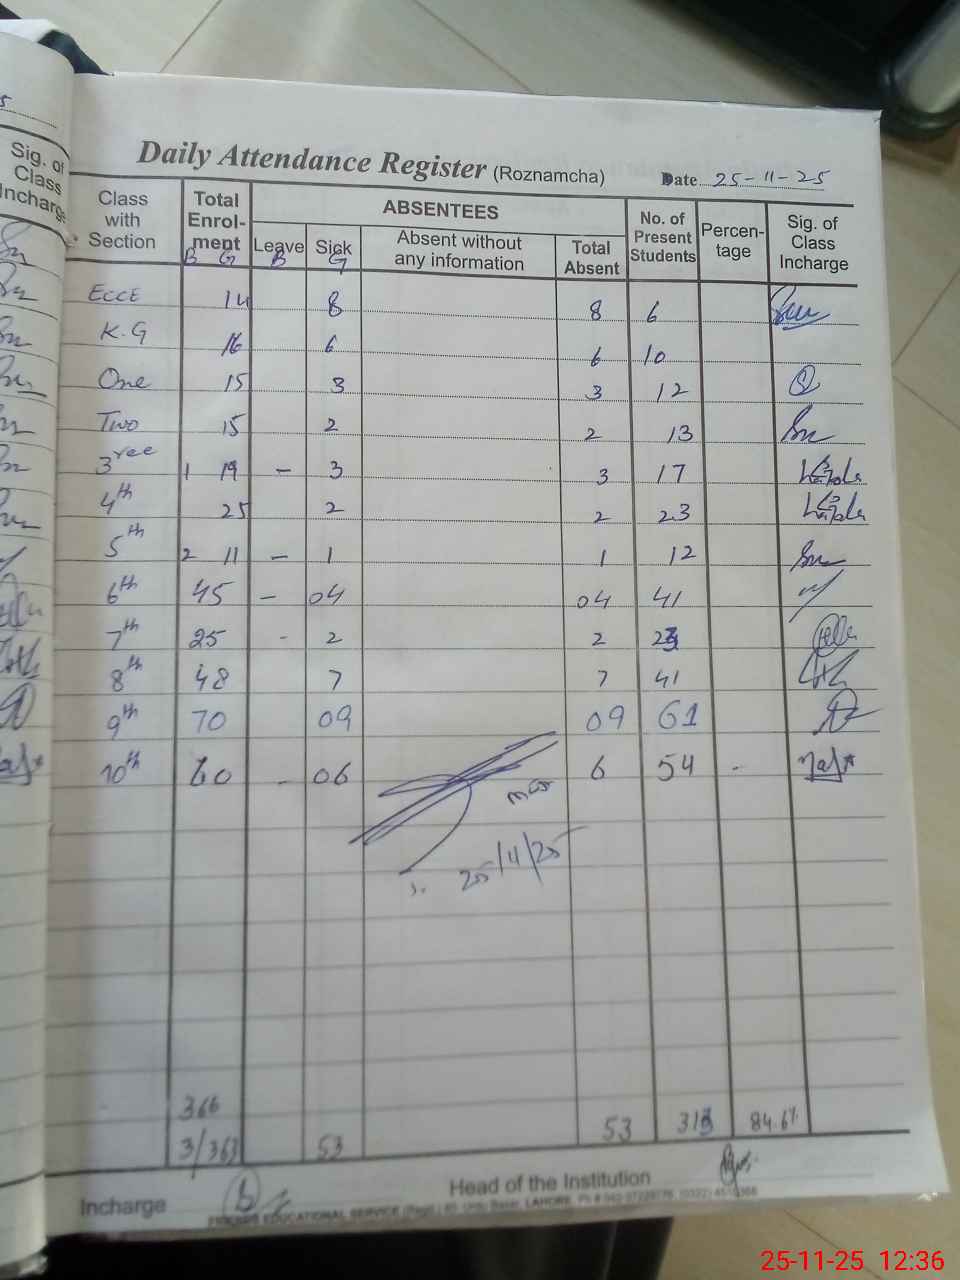 Sig. of
Class
Incharge
Daily Attendance Register (Roznamcha) Date 25-11-25
Class with Section | Total Enrol-ment B G | ABSENTEES: Leave B | Sick G | Absent without any information | Total Absent | No. of Present Students | Percen-tage | Sig. of Class Incharge
ECCE 14 8 8 6
K.G 16 6 6 10
One 15 3 3 12
Two 15 2 2 13
3ree 1 19 - 3 3 17
4th 25 2 2 23
5th 2 11 - 1 1 12
6th 45 - 04 04 41
7th 25 - 2 2 23
8th 48 7 7 41
9th 70 09 09 61
10th 60 - 06 6 54 -
25/4/25
366
3/363 53 53 313 84.6%
Incharge Head of the Institution
EDUCATIONAL SERVICE LAHORE
25-11-25 12:36